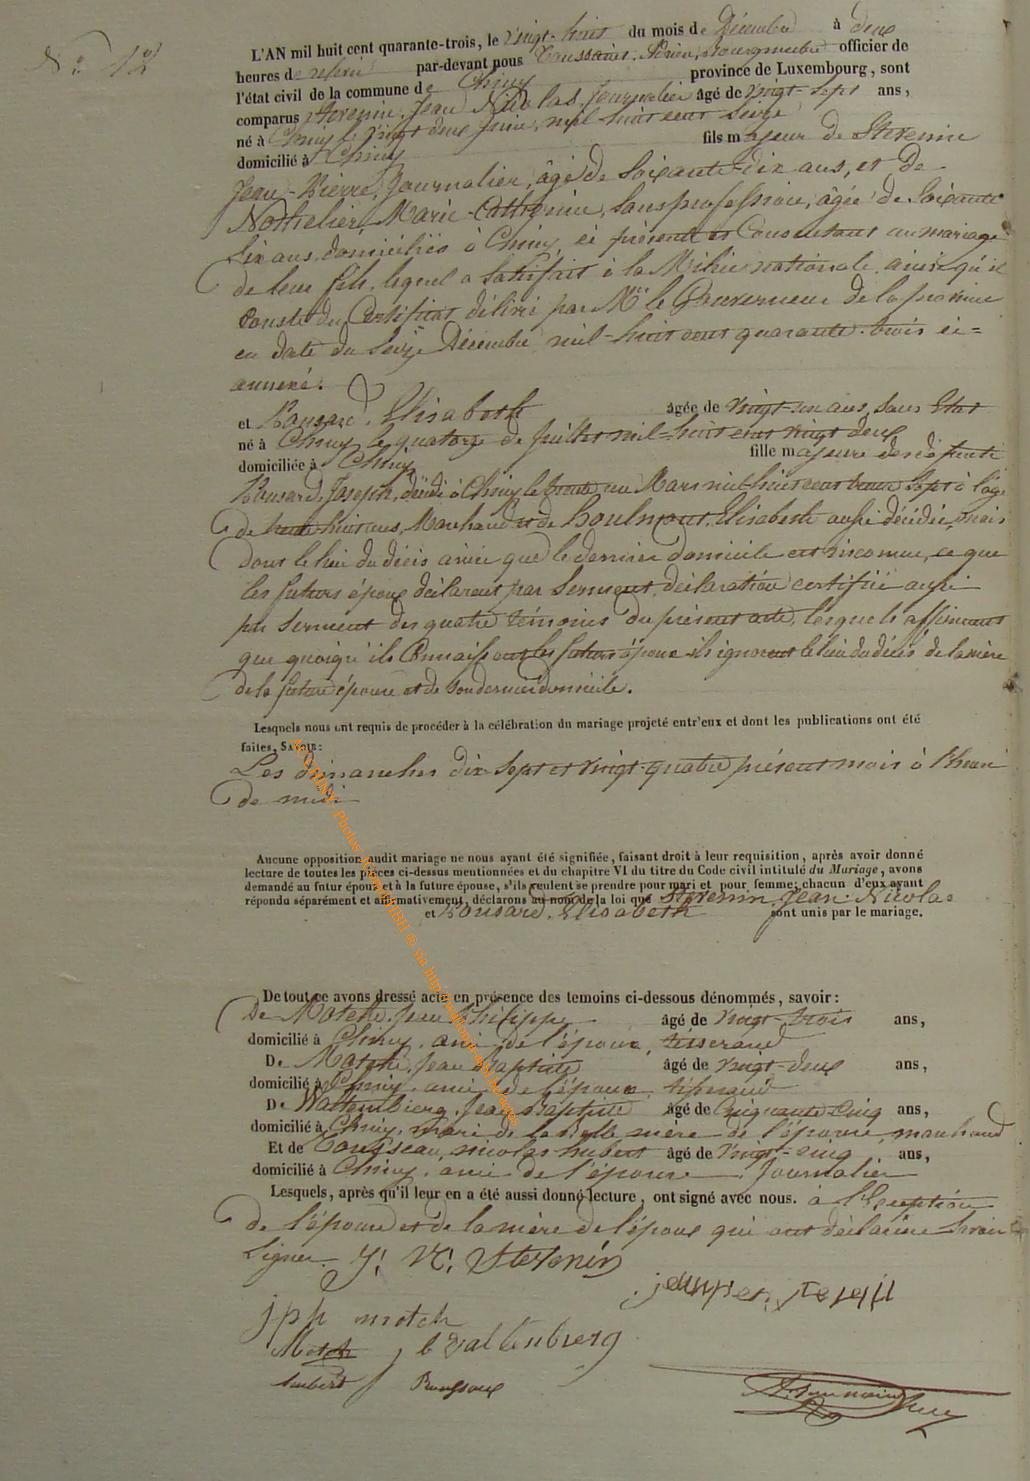 N° 12
L'AN mil huit cent quarante-trois, le vingt-huit du mois de Décembre à deux
heures de relevé par-devant nous Toussaint, Adrien, Bourgmestre officier de
l'état civil de la commune de Chiny province de Luxembourg, sont
comparus Stevenin, Jean Nicolas, Journalier âgé de vingt-sept ans,
né à Chiny le vingt deux Juin, mil huit cent seize
domicilié à Chiny fils majeur de Stevenin
Jean-Pierre, Journalier, âgé de Soixante-dix ans, et de
Marie-Catherine, Sans profession, âgée de Soixante
Six ans domiciliés à Chiny, ci présent et Consentant au mariage
de leur fils, lequel a Satisfait à la Milice nationale, ainsi qu'il
Conste du Certificat délivré par Mr. le Gouverneur de la province
en date du Seize Décembre mil-huit cent quarante-trois ci=
annexé.
et Rousard, Elisabeth âgée de vingt-un ans, Sans Etat
né à Chiny le quatorze de Juillet mil-huit cent vingt deux
domiciliée à Chiny fille majeure des défunts
Rousard, Joseph, décédé à Chiny le trente un Mars mil huit cent trente Sept à l'âge
de huit ans, Marchand et de Houlmont, Elisabeth aussi décédée, mais
dont le lieu du décès ainsi que le dernier domicile est inconnu, ce que
les futurs époux déclarent par Serment, déclaration certifiée aussi
par Serment des quatre témoins du présent acte, lesquels affirment
que quoiqu'ils Connaissent les futurs époux ils ignorent le lieu du décès de la mère
de la future épouse et de son dernier domicile.
Lesquels nous ont requis de procéder à la célébration du mariage projeté entr'eux et dont les publications ont été
faites, SAVOIR:
Les dimanches dix-Sept et vingt-quatre présent mois à l'heure
de midi
Aucune opposition audit mariage ne nous ayant été signifiée, faisant droit à leur requisition, après avoir donné
lecture de toutes les pièces ci-dessus mentionnées et du chapitre VI du titre du Code civil intitulé du Mariage, avons
demandé au futur époux et à la future épouse, s'ils veulent se prendre pour mari et pour femme; chacun d'eux ayant
répondu séparément et affirmativement, déclarons au nom de la loi que Stevenin, Jean-Nicolas
et Rousard, Elisabeth sont unis par le mariage.
De tout ce avons dressé acte en présence des temoins ci-dessous dénommés, savoir:
De Motch, Jean Philippe âgé de vingt-trois ans,
domicilié à Chiny, ami de l'époux, tisserand
De Motch, Jean Baptiste âgé de vingt-deux ans,
domicilié à Chiny, ami de l'époux, tisserand
De Waltembierg, Jean Baptiste âgé de Cinquante Cinq ans,
domicilié à Chiny, mari de la Belle mère de l'épouse, marchand
Et de Rousseau, nicolas hubert âgé de vingt-cinq ans,
domicilié à Chiny, ami de l'épouse, Journalier
Lesquels, après qu'il leur en a été aussi donné lecture, ont signé avec nous. à l'Exception
de l'épouse et de la mère de l'époux qui ont déclaré ne Savoir
Signer. J. N. Stevenin
jph motch
Motch